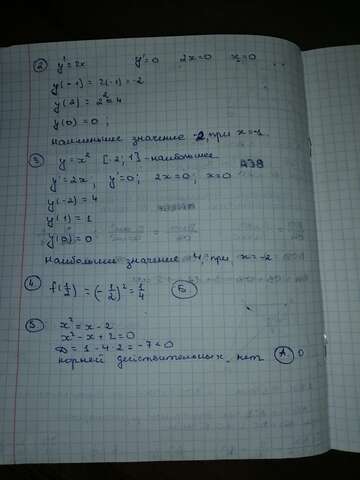 ② y' = 2x y' = 0 2x = 0 x = 0
y(-1) = 2(-1) = -2
y(2) = 2² = 4
y(0) = 0;
наименьшее значение -2, при x = -1.
③ y = x² [-2; 1] - наибольшее
y' = 2x, y' = 0; 2x = 0; x = 0
y(-2) = 4
y(1) = 1
y(0) = 0
наибольшее значение 4 при x = -2
④ f(½) = (-½)² = ¼ Б
5. x² = x - 2
x² - x + 2 = 0
D = 1 - 4·2 = -7 < 0
корней действительных нет А 0